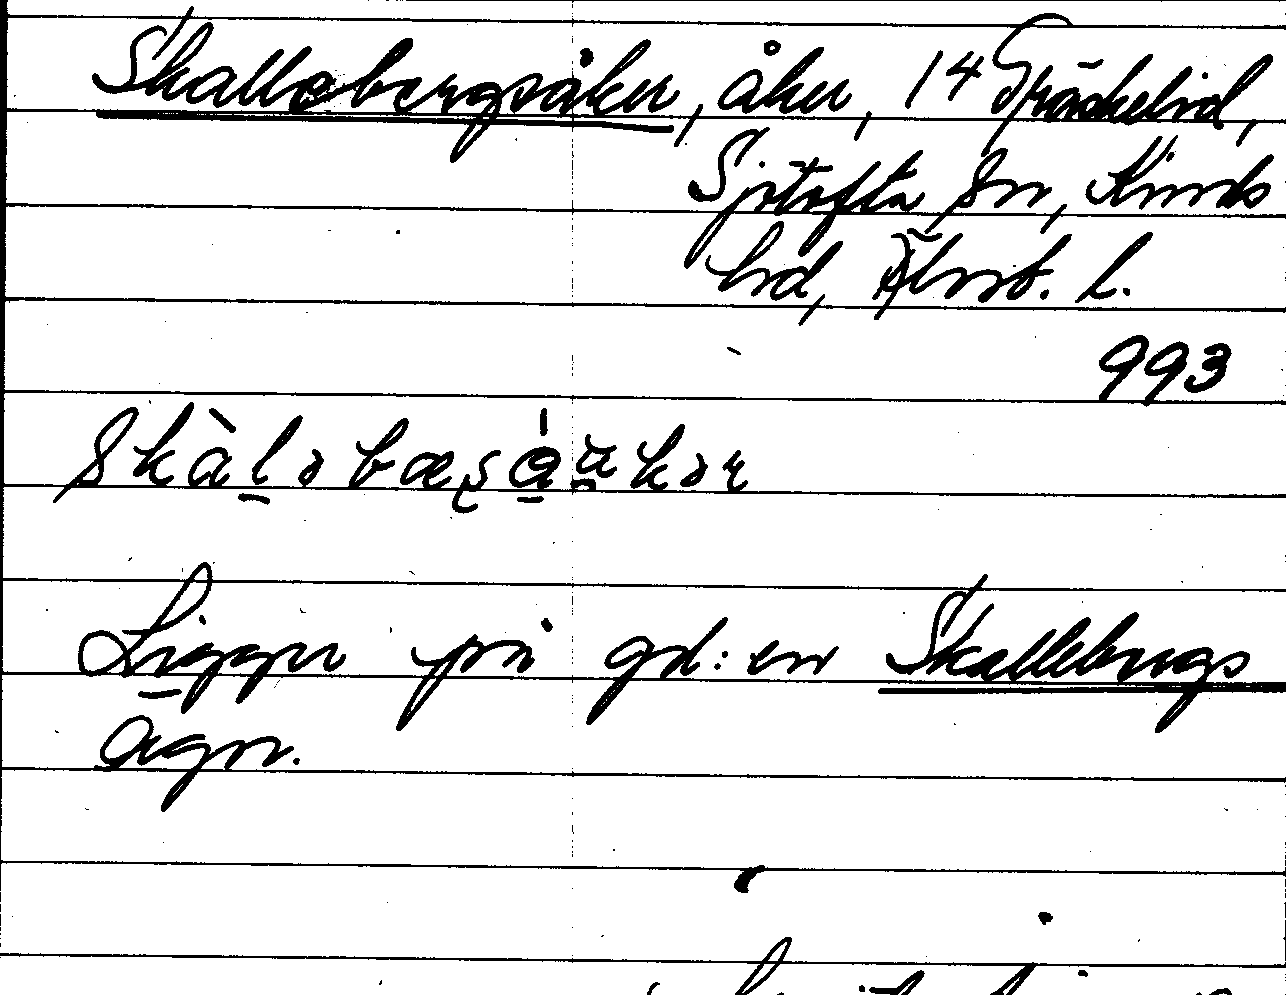 Skallebergsåker, åker, 14 Gräckelid,
Sjötofta sn, Kinds
hd, Älvsb. l.
993
Ligger på gd:en Skallebergs
ägor.